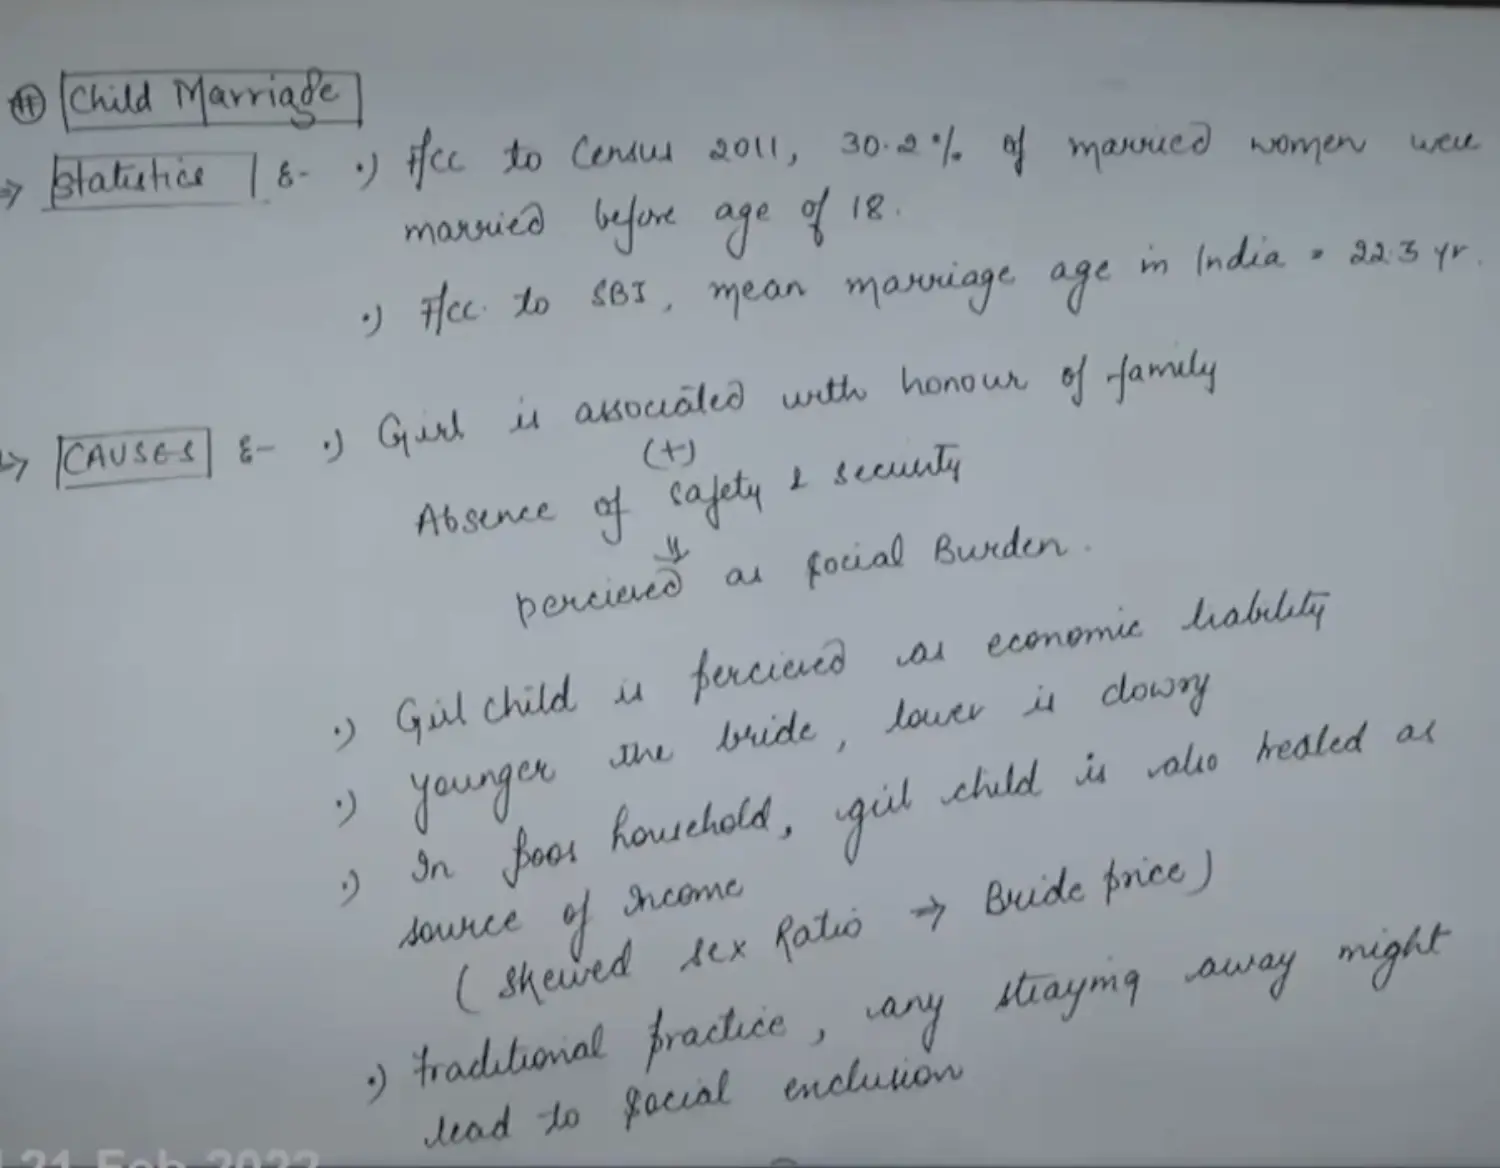 # Child Marriage
⇒ Statistics :- •) Acc to Census 2011, 30.2% of married women were
married before age of 18.
•) Acc. to SBI, mean marriage age in India = 22.3 yr.
↳ CAUSES :- •) Girl is associated with honour of family
(+)
Absence of safety & security
⇓
percieved as social Burden.
•) Girl child is percieved as economic liability
•) younger the bride, lower is dowry
•) In poor household, girl child is also treated as
source of Income
(Skewed sex Ratio ⇒ Bride price)
•) traditional practice, any straying away might
lead to social exclusion
21 Feb 2022